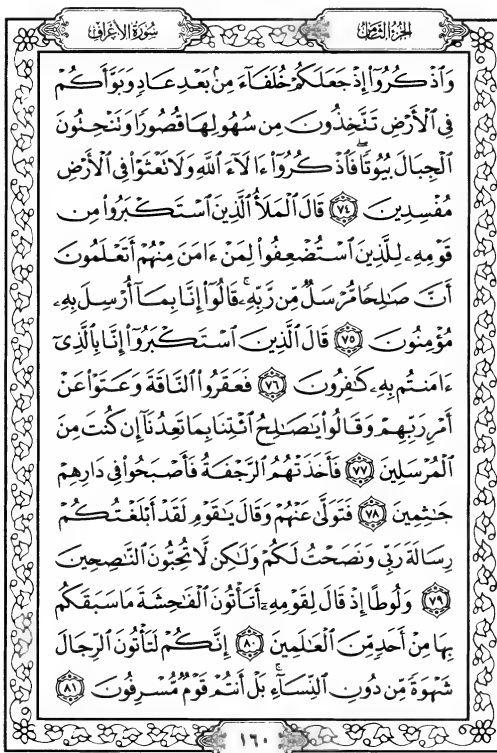 الجزء الثامن
سورة الأعراف
وَٱذْكُرُوٓاْ إِذْ جَعَلَكُمْ خُلَفَآءَ مِنۢ بَعْدِ عَادٍ وَبَوَّأَكُمْ
فِى ٱلْأَرْضِ تَتَّخِذُونَ مِن سُهُولِهَا قُصُورًا وَتَنْحِتُونَ
ٱلْجِبَالَ بُيُوتًا ۖ فَٱذْكُرُوٓاْ ءَالَآءَ ٱللَّهِ وَلَا تَعْثَوْاْ فِى ٱلْأَرْضِ
مُفْسِدِينَ ٧٤ قَالَ ٱلْمَلَأُ ٱلَّذِينَ ٱسْتَكْبَرُواْ مِن
قَوْمِهِۦ لِلَّذِينَ ٱسْتُضْعِفُواْ لِمَنْ ءَامَنَ مِنْهُمْ أَتَعْلَمُونَ
أَنَّ صَٰلِحًا مُّرْسَلٌ مِّن رَّبِّهِۦ ۚ قَالُوٓاْ إِنَّا بِمَآ أُرْسِلَ بِهِۦ
مُؤْمِنُونَ ٧٥ قَالَ ٱلَّذِينَ ٱسْتَكْبَرُوٓاْ إِنَّا بِٱلَّذِىٓ
ءَامَنتُم بِهِۦ كَٰفِرُونَ ٧٦ فَعَقَرُواْ ٱلنَّاقَةَ وَعَتَوْاْ عَنْ
أَمْرِ رَبِّهِمْ وَقَالُواْ يَٰصَٰلِحُ ٱئْتِنَا بِمَا تَعِدُنَآ إِن كُنتَ مِنَ
ٱلْمُرْسَلِينَ ٧٧ فَأَخَذَتْهُمُ ٱلرَّجْفَةُ فَأَصْبَحُواْ فِى دَارِهِمْ
جَٰثِمِينَ ٧٨ فَتَوَلَّىٰ عَنْهُمْ وَقَالَ يَٰقَوْمِ لَقَدْ أَبْلَغْتُكُمْ
رِسَالَةَ رَبِّى وَنَصَحْتُ لَكُمْ وَلَٰكِن لَّا تُحِبُّونَ ٱلنَّٰصِحِينَ
٧٩ وَلُوطًا إِذْ قَالَ لِقَوْمِهِۦٓ أَتَأْتُونَ ٱلْفَٰحِشَةَ مَا سَبَقَكُم
بِهَا مِنْ أَحَدٍ مِّنَ ٱلْعَٰلَمِينَ ٨٠ إِنَّكُمْ لَتَأْتُونَ ٱلرِّجَالَ
شَهْوَةً مِّن دُونِ ٱلنِّسَآءِ ۚ بَلْ أَنتُمْ قَوْمٌ مُّسْرِفُونَ ٨١
١٦٠